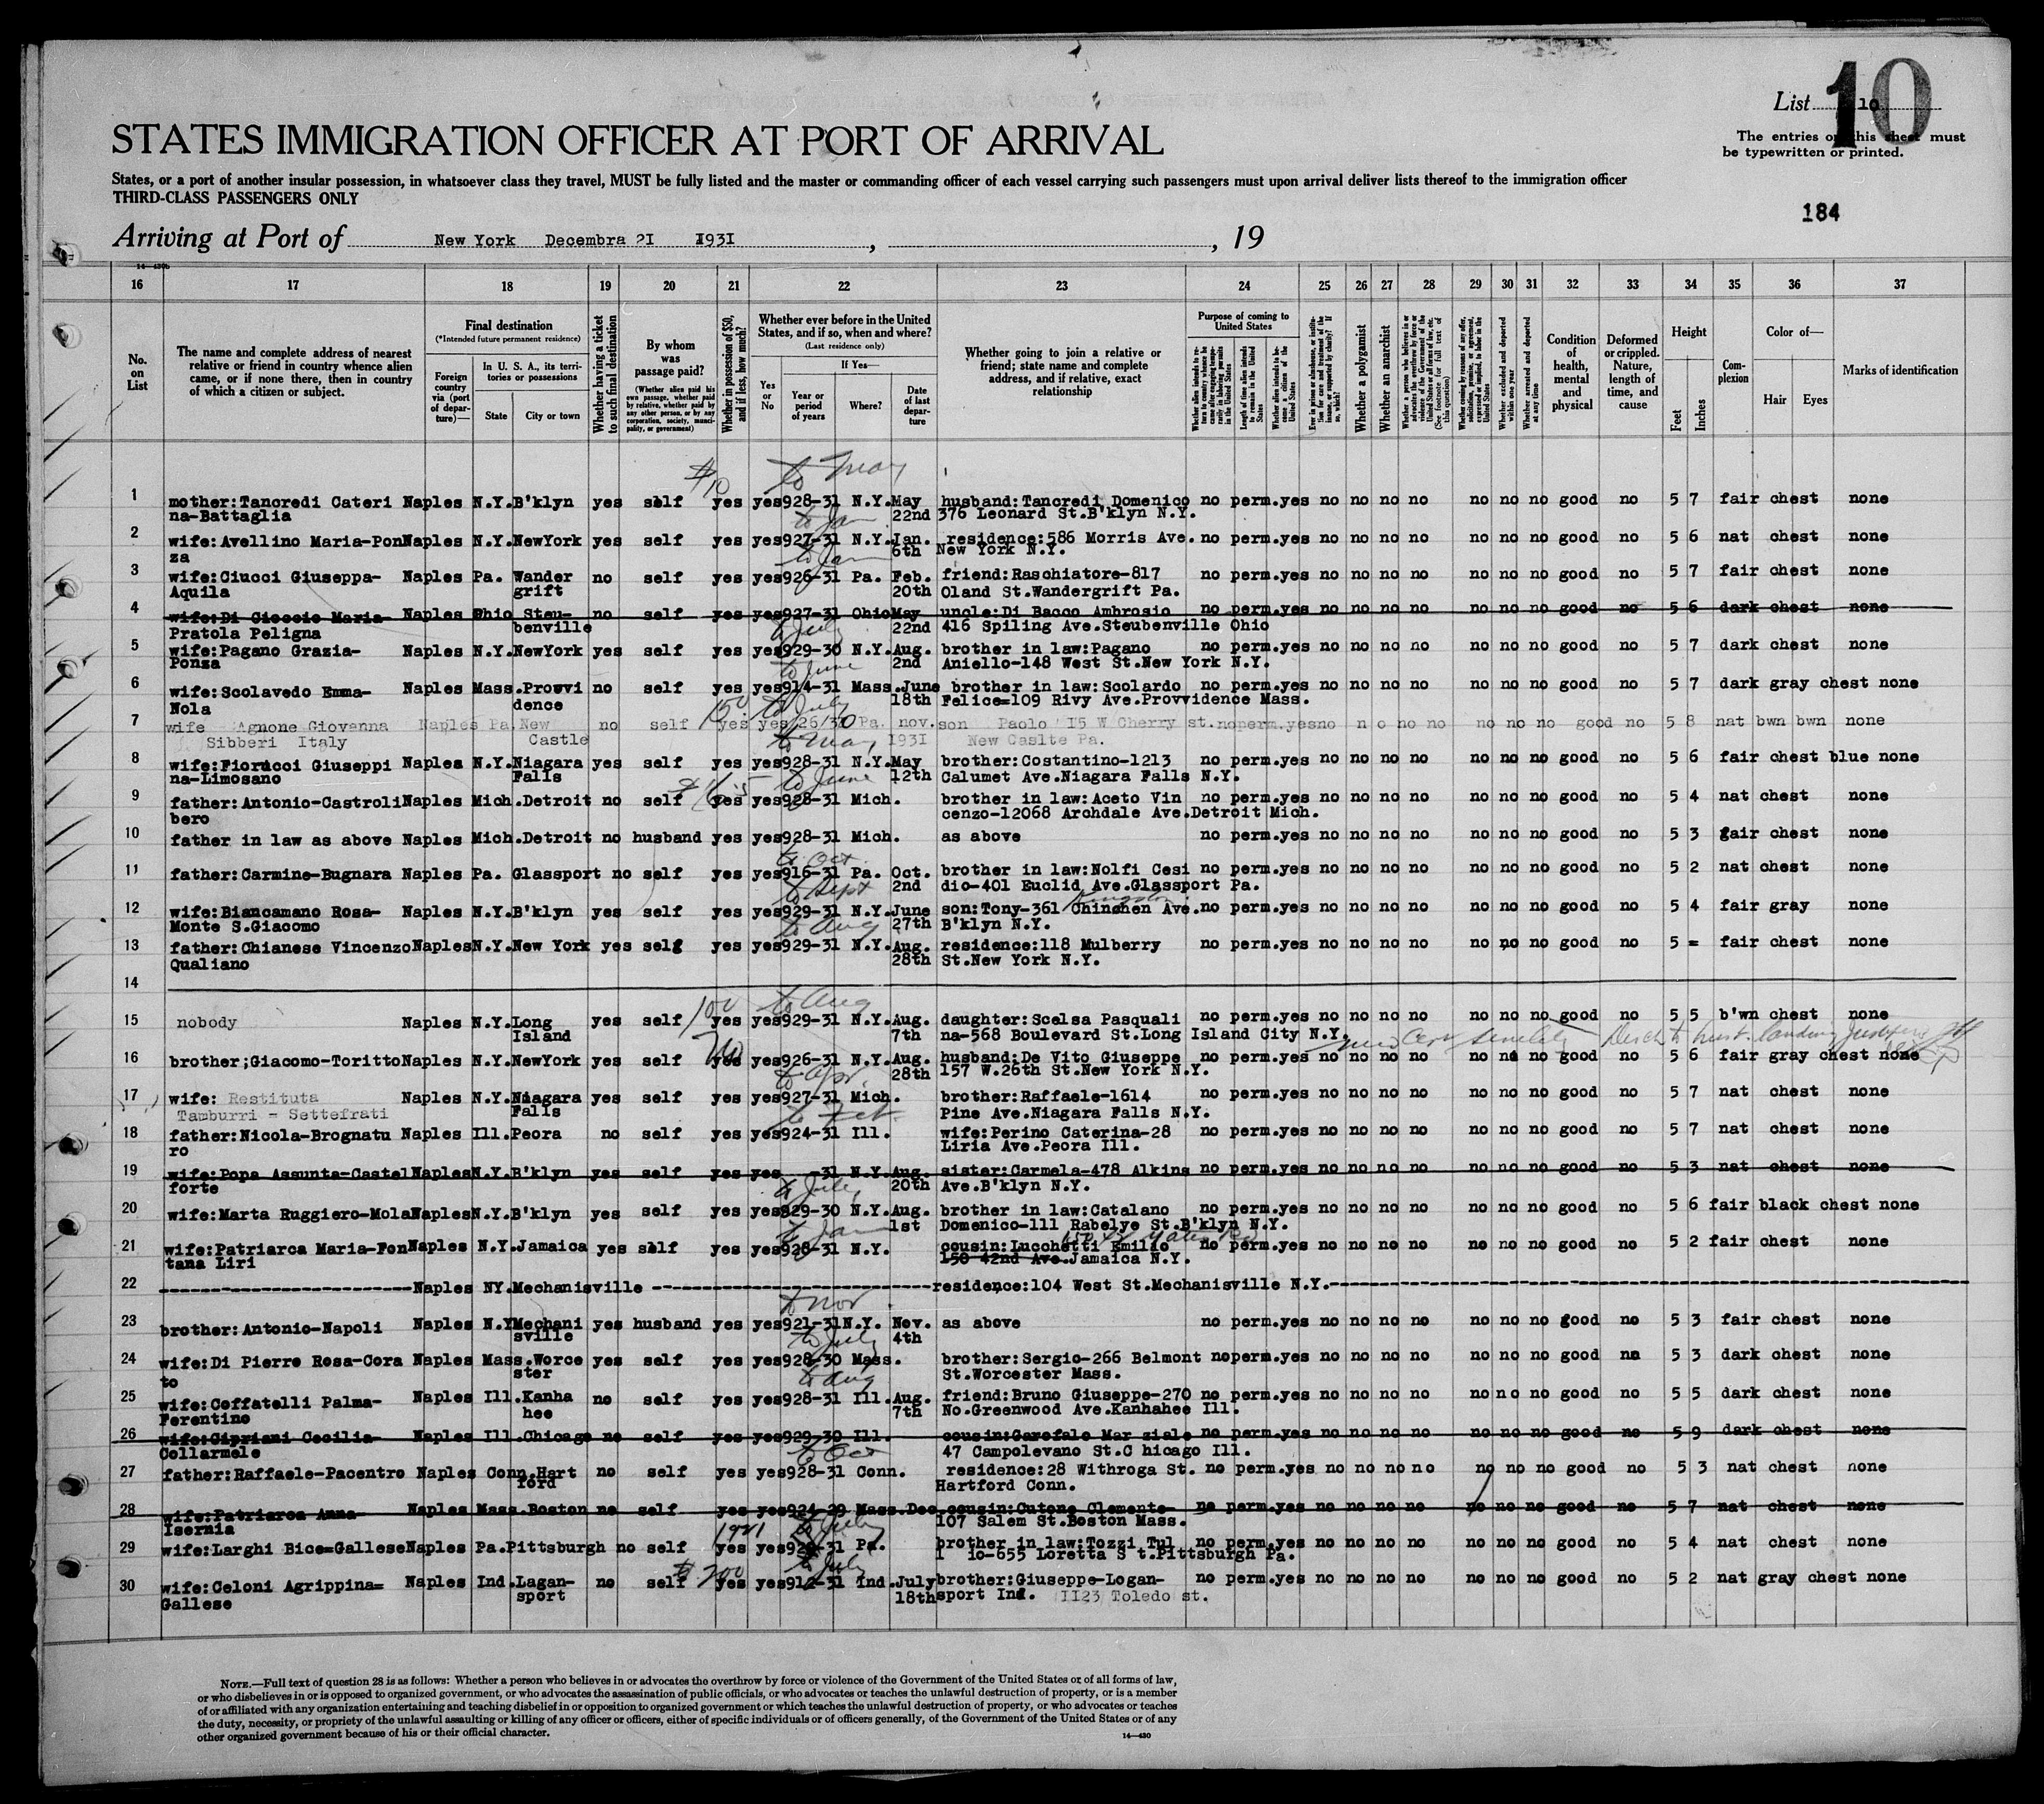 List 10
10
The entries on this sheet must
be typewritten or printed.
STATES IMMIGRATION OFFICER AT PORT OF ARRIVAL
States, or a port of another insular possession, in whatsoever class they travel, MUST be fully listed and the master or commanding officer of each vessel carrying such passengers must upon arrival deliver lists thereof to the immigration officer
THIRD-CLASS PASSENGERS ONLY
184
Arriving at Port of New York Decembra 21 1931 , , 19
16 17 18 19 20 21 22 23 24 25 26 27 28 29 30 31 32 33 34 35 36 37
No. on List
The name and complete address of nearest relative or friend in country whence alien came, or if none there, then in country of which a citizen or subject.
Final destination
(*Intended future permanent residence)
Foreign country via (port of departure)—
In U. S. A., its territories or possessions
State
City or town
Whether having a ticket to such final destination
By whom was passage paid?
(Whether alien paid his own passage, whether paid by relative, whether paid by any other person, or by any corporation, society, municipality, or government)
Whether in possession of $50, and if less, how much?
Whether ever before in the United States, and if so, when and where?
(Last residence only)
Yes or No
If Yes—
Year or period of years
Where?
Date of last departure
Whether going to join a relative or friend; state name and complete address, and if relative, exact relationship
Purpose of coming to United States
Length of time alien intends to remain in the United States
Whether alien intends to become a citizen of the United States
Whether a polygamist
Whether an anarchist
Whether excluded and deported within one year
Whether arrested and deported at any time
Condition of health, mental and physical
Deformed or crippled. Nature, length of time, and cause
Height
Feet
Inches
Complexion
Color of—
Hair
Eyes
Marks of identification
$10 to May
1 mother:Tancredi Cateri Naples N.Y.B'klyn yes self yes yes928-31 N.Y.May husband:Tancredi Domenico no perm.yes no no no no no no no good no 5 7 fair chest none
na-Battaglia 22nd 376 Leonard St.B'klyn N.Y.
to Jan
2 wife:Avellino Maria-Pon Naples N.Y.NewYork yes self yes yes927-31 N.Y.Jan. residence:586 Morris Ave. no perm.yes no no no no no no no good no 5 6 nat chest none
za 6th New York N.Y.
to Jan
3 wife:Ciucci Giuseppa- Naples Pa. Wander no self yes yes926-31 Pa. Feb. friend:Raschiatore-817 no perm.yes no no no no no no no good no 5 7 fair chest none
Aquila grift 20th Oland St.Wandergrift Pa.
4 wife:Di Cioccio Maria- Naples Ohio Steu- no self yes yes927-31 Ohio May uncle:Di Bacco Ambrosio no perm.yes no no no no no no no good no 5 6 dark chest none
Pratola Peligna benville 22nd 416 Spiling Ave.Steubenville Ohio
to July
5 wife:Pagano Grazia- Naples N.Y.NewYork yes self yes yes929-30 N.Y.Aug. brother in law:Pagano no perm.yes no no no no no no no good no 5 7 dark chest none
Ponza 2nd Aniello-148 West St.New York N.Y.
to June
6 wife:Scolavedo Emma- Naples Mass.Prouvi no self yes yes914-31 Mass.June brother in law:Scolardo no perm.yes no no no no no no no good no 5 7 dark gray chest none
Nola dence 18th Felice=109 Rivy Ave.Provvidence Mass.
150 to July
7 wife Agnone Giovanna Naples Pa.New no self yes yes /26/30 Pa. nov. son Paolo I5 W Cherry st. noperm.yesno n o no no no no no good no 5 8 nat bwn bwn none
Sibberi Italy Castle 1931 New Caslte Pa.
to May
8 wife:Fiorucci Giuseppi Naples N.Y.Niagara yes self yes yes928-31 N.Y.May brother:Costantino-1213 no perm.yes no no no no no no no good no 5 6 fair chest blue none
na-Limosano Falls 12th Calumet Ave.Niagara Falls N.Y.
to June
9 father:Antonio-Castroli Naples Mich.Detroit no self yes yes928-31 Mich. brother in law:Aceto Vin no perm.yes no no no no no no no good no 5 4 nat chest none
bero cenzo-12068 Archdale Ave.Detroit Mich.
10 father in law as above Naples Mich.Detroit no husband yes yes928-31 Mich. as above no perm.yes no no no no no no no good no 5 3 fair chest none
to Oct
11 father:Carmine-Bugnara Naples Pa. Glassport no self yes yes916-31 Pa. Oct. brother in law:Nolfi Cesi no perm.yes no no no no no no no good no 5 2 nat chest none
2nd dio-401 Euclid Ave.Glassport Pa.
to Sept Kingston
12 wife:Biancamano Rosa- Naples N.Y.B'klyn yes self yes yes929-31 N.Y.June son:Tony-361 Chinchen Ave.no perm.yes no no no no no no no good no 5 4 fair gray none
Monte S.Giacomo 27th B'klyn N.Y.
to Aug
13 father:Chianese Vincenzo NaplesN.Y.New York yes self yes yes929-31 N.Y.Aug. residence:118 Mulberry no perm.yes no no no no no no no good no 5 = fair chest none
Qualiano 28th St.New York N.Y.
14
100 to Aug
15 nobody Naples N.Y.Long yes self yes yes929-31 N.Y.Aug. daughter:Scelsa Pasquali no perm.yes no no no no no no no good no 5 5 b'wn chest none
Island 7th na-568 Boulevard St.Long Island City N.Y.
16 brother;Giacomo-Toritto Naples N.Y.NewYork yes self yes yes926-31 N.Y.Aug. husband:De Vito Giuseppe no perm.yes no no no no no no no good no 5 6 fair gray chest none
28th 157 W.26th St.New York N.Y.
to Apr.
17 wife: Restituta Naples N.Y.Niagara yes self yes yes927-31 Mich. brother:Raffaele-1614 no perm.yes no no no no no no no good no 5 7 nat chest none
Tamburri - Settefrati Falls Pine Ave.Niagara Falls N.Y.
18 father:Nicola-Brognatu Naples Ill.Peora no self yes yes924-31 Ill. wife:Perino Caterina-28 no perm.yes no no no no no no no good no 5 7 nat chest none
ro Liria Ave.Peora Ill.
19 wife:Popa Assunta-Castel NaplesN.Y.B'klyn yes self yes yes -31 N.Y.Aug. sister:Carmela-478 Alkins no perm.yes no no no no no no no good no 5 3 nat chest none
forte 20th Ave.B'klyn N.Y.
to July
20 wife:Marta Ruggiero-Mola NaplesN.Y.B'klyn yes self yes yes829-30 N.Y.Aug. brother in law:Catalano no perm.yes no no no no no no no good no 5 6 fair black chest none
1st Domenico-111 Rabelye St.B'klyn N.Y.
to Jan
21 wife:Patriarca Maria-Fon Naples N.Y.Jamaica yes self yes yes928-31 N.Y. cousin:Lucchetti Emilio no perm.yes no no no no no no no good no 5 2 fair chest none
tana Liri 150 42nd Ave.Jamaica N.Y.
22 Naples NY.Mechanisville residence:104 West St.Mechanisville N.Y.
to Nov.
23 brother:Antonio-Napoli Naples N.Y.Mechani yes husband yes yes921-31N.Y. Nov. as above no perm.yes no no no no no no no good no 5 3 fair chest none
sville 4th
to July
24 wife:Di Pierro Rosa-Cora Naples Mass.Worce yes self yes yes928-30 Mass. brother:Sergio-266 Belmont noperm.yes no no no no no no no good no 5 3 dark chest none
to ster St.Worcester Mass.
to Aug
25 wife:Coffatelli Palma- Naples Ill.Kanha no self yes yes928-31 Ill.Aug. friend:Bruno Giuseppe-270 no perm.yes no no no no no no no good no 5 5 dark chest none
Ferentino hee 7th No.Greenwood Ave.Kanhahee Ill.
26 wife:Cipriani Cecilia- Naples Ill.Chicago no self yes yes929-30 Ill. cousin:Garofalo Mar ziale no perm.yes no no no no no no no good no 5 9 dark chest none
Collarmele 47 Campolevano St.C hicago Ill.
to Oct
27 father:Raffaele-Pacentro Naples Conn.Hart no self yes yes928-31 Conn. residence:28 Withroga St. no perm.yes no no no no no no no good no 5 3 nat chest none
ford Hartford Conn.
28 wife:Patriarca Anna- Naples Mass.Boston no self yes yes924-29 Mass.Dec cousin:Cutone Clemente- no perm.yes no no no no no no no good no 5 7 nat chest none
Isernia 107 Salem St.Boston Mass.
1921 to July
29 wife:Larghi Bice=Gallese Naples Pa.Pittsburgh no self yes yes929-31 Pa. brother in law:Tozzi Tul no perm.yes no no no no no no no good no 5 4 nat chest none
l io-655 Loretta S t.Pittsburgh Pa.
$200 to July
30 wife:Celoni Agrippina= Naples Ind.Lagan- no self yes yes912-31 Ind.July brother:Giuseppe-Logan- no perm.yes no no no no no no no good no 5 2 nat gray chest none
Gallese sport 18th sport Ind. II23 Toledo st.
NOTE.—Full text of question 28 is as follows: Whether a person who believes in or advocates the overthrow by force or violence of the Government of the United States or of all forms of law,
or who disbelieves in or is opposed to organized government, or who advocates the assassination of public officials, or who advocates or teaches the unlawful destruction of property, or is a member
of or affiliated with any organization entertaining and teaching disbelief in or opposition to organized government or which teaches the unlawful destruction of property, or who advocates or teaches
the duty, necessity, or propriety of the unlawful assaulting or killing of any officer or officers, either of specific individuals or of officers generally, of the Government of the United States or of any
other organized government because of his or their official character.
14—430